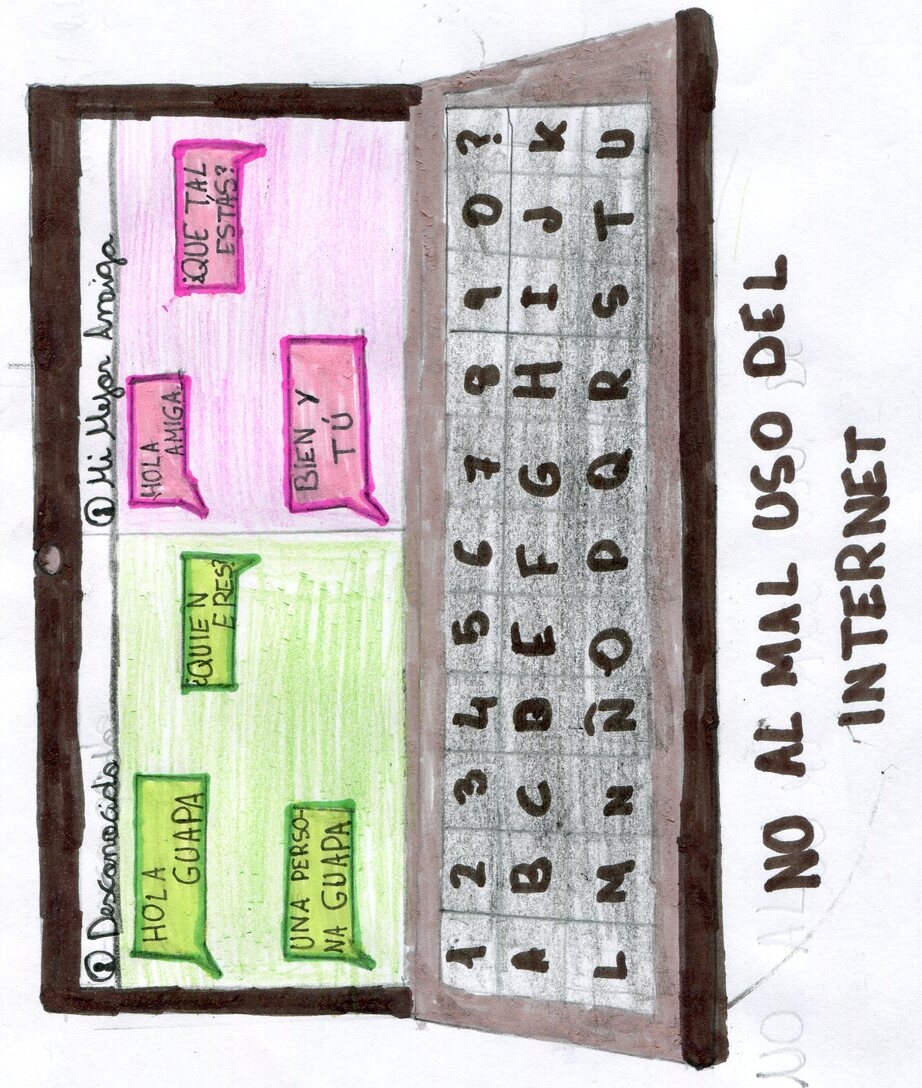 Desconocido
HOLA
GUAPA
¿QUIEN
ERES?
UNA PERSO-
NA GUAPA
Mi Mejor Amiga
HOLA
AMIGA
¿QUE TAL
ESTÁS?
BIEN Y
TÚ
1 2 3 4 5 6 7 8 9 0 ?
A B C D E F G H I J K
L M N Ñ O P Q R S T U
NO AL MAL USO DEL
INTERNET